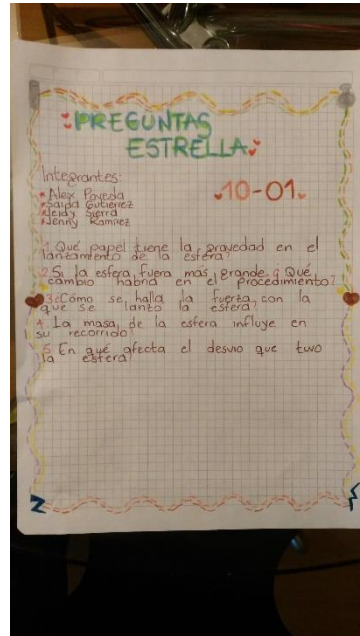 PREGUNTAS
ESTRELLA
Integrantes:
Alex Poveda
Saida Gutierrez
Leidy Sierra
Jenny Ramirez
10-01
1. Qué papel tiene la gravedad en el
lanzamiento de la esfera?
2. Si la esfera fuera más grande ¿ Qué
cambio habría en el procedimiento?
3. ¿Cómo se halla la fuerza con la
que se lanzo la esfera?
4. La masa de la esfera influye en
su recorrido?
5. En qué afecta el desvio que tuvo
la esfera?